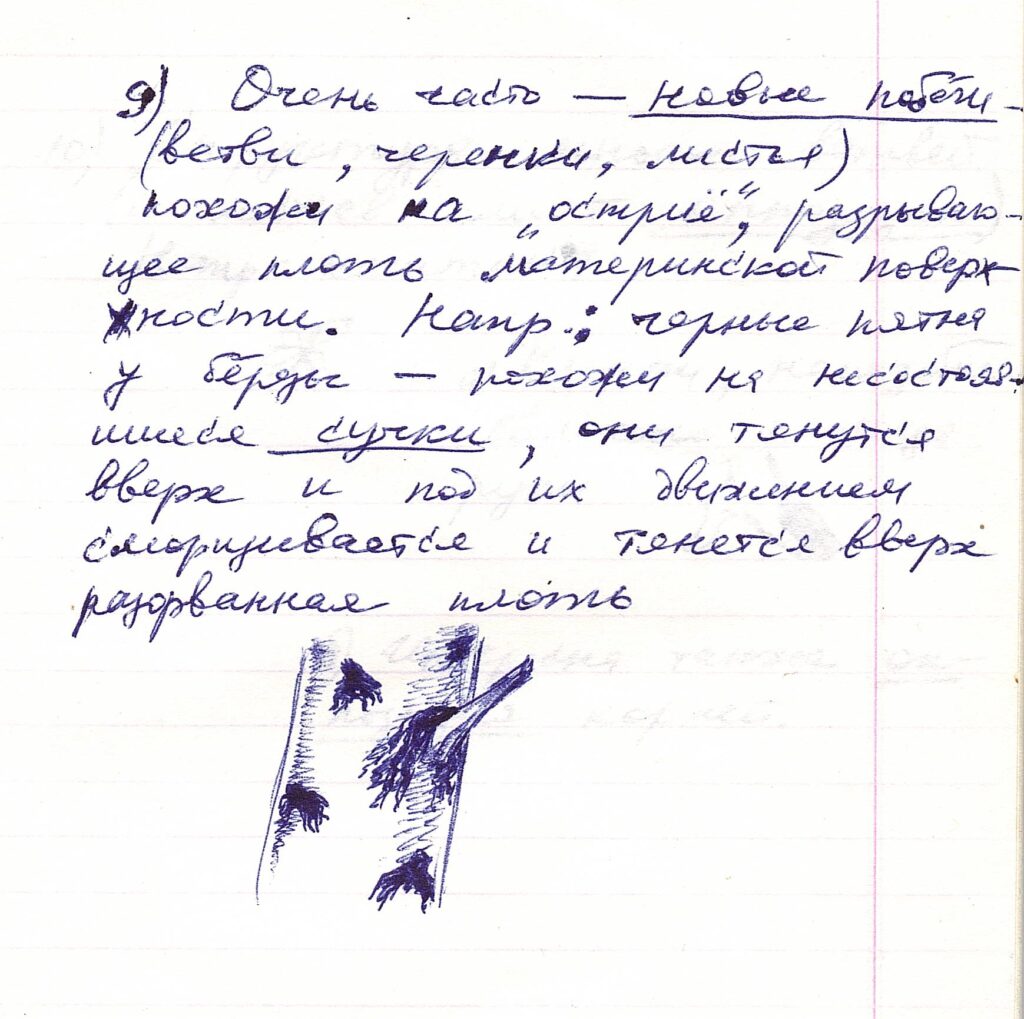 9) Очень часто — новые побеги -
(ветви, черенки, листья)
похожи на „острие“, разрываю-
щее плоть материнской поверх
ности. Напр.: черные пятна
у берёзы — похожи на несостояв-
шиеся сучки, они тянутся
вверх и под их движением
сморщивается и тянется вверх
разорванная плоть